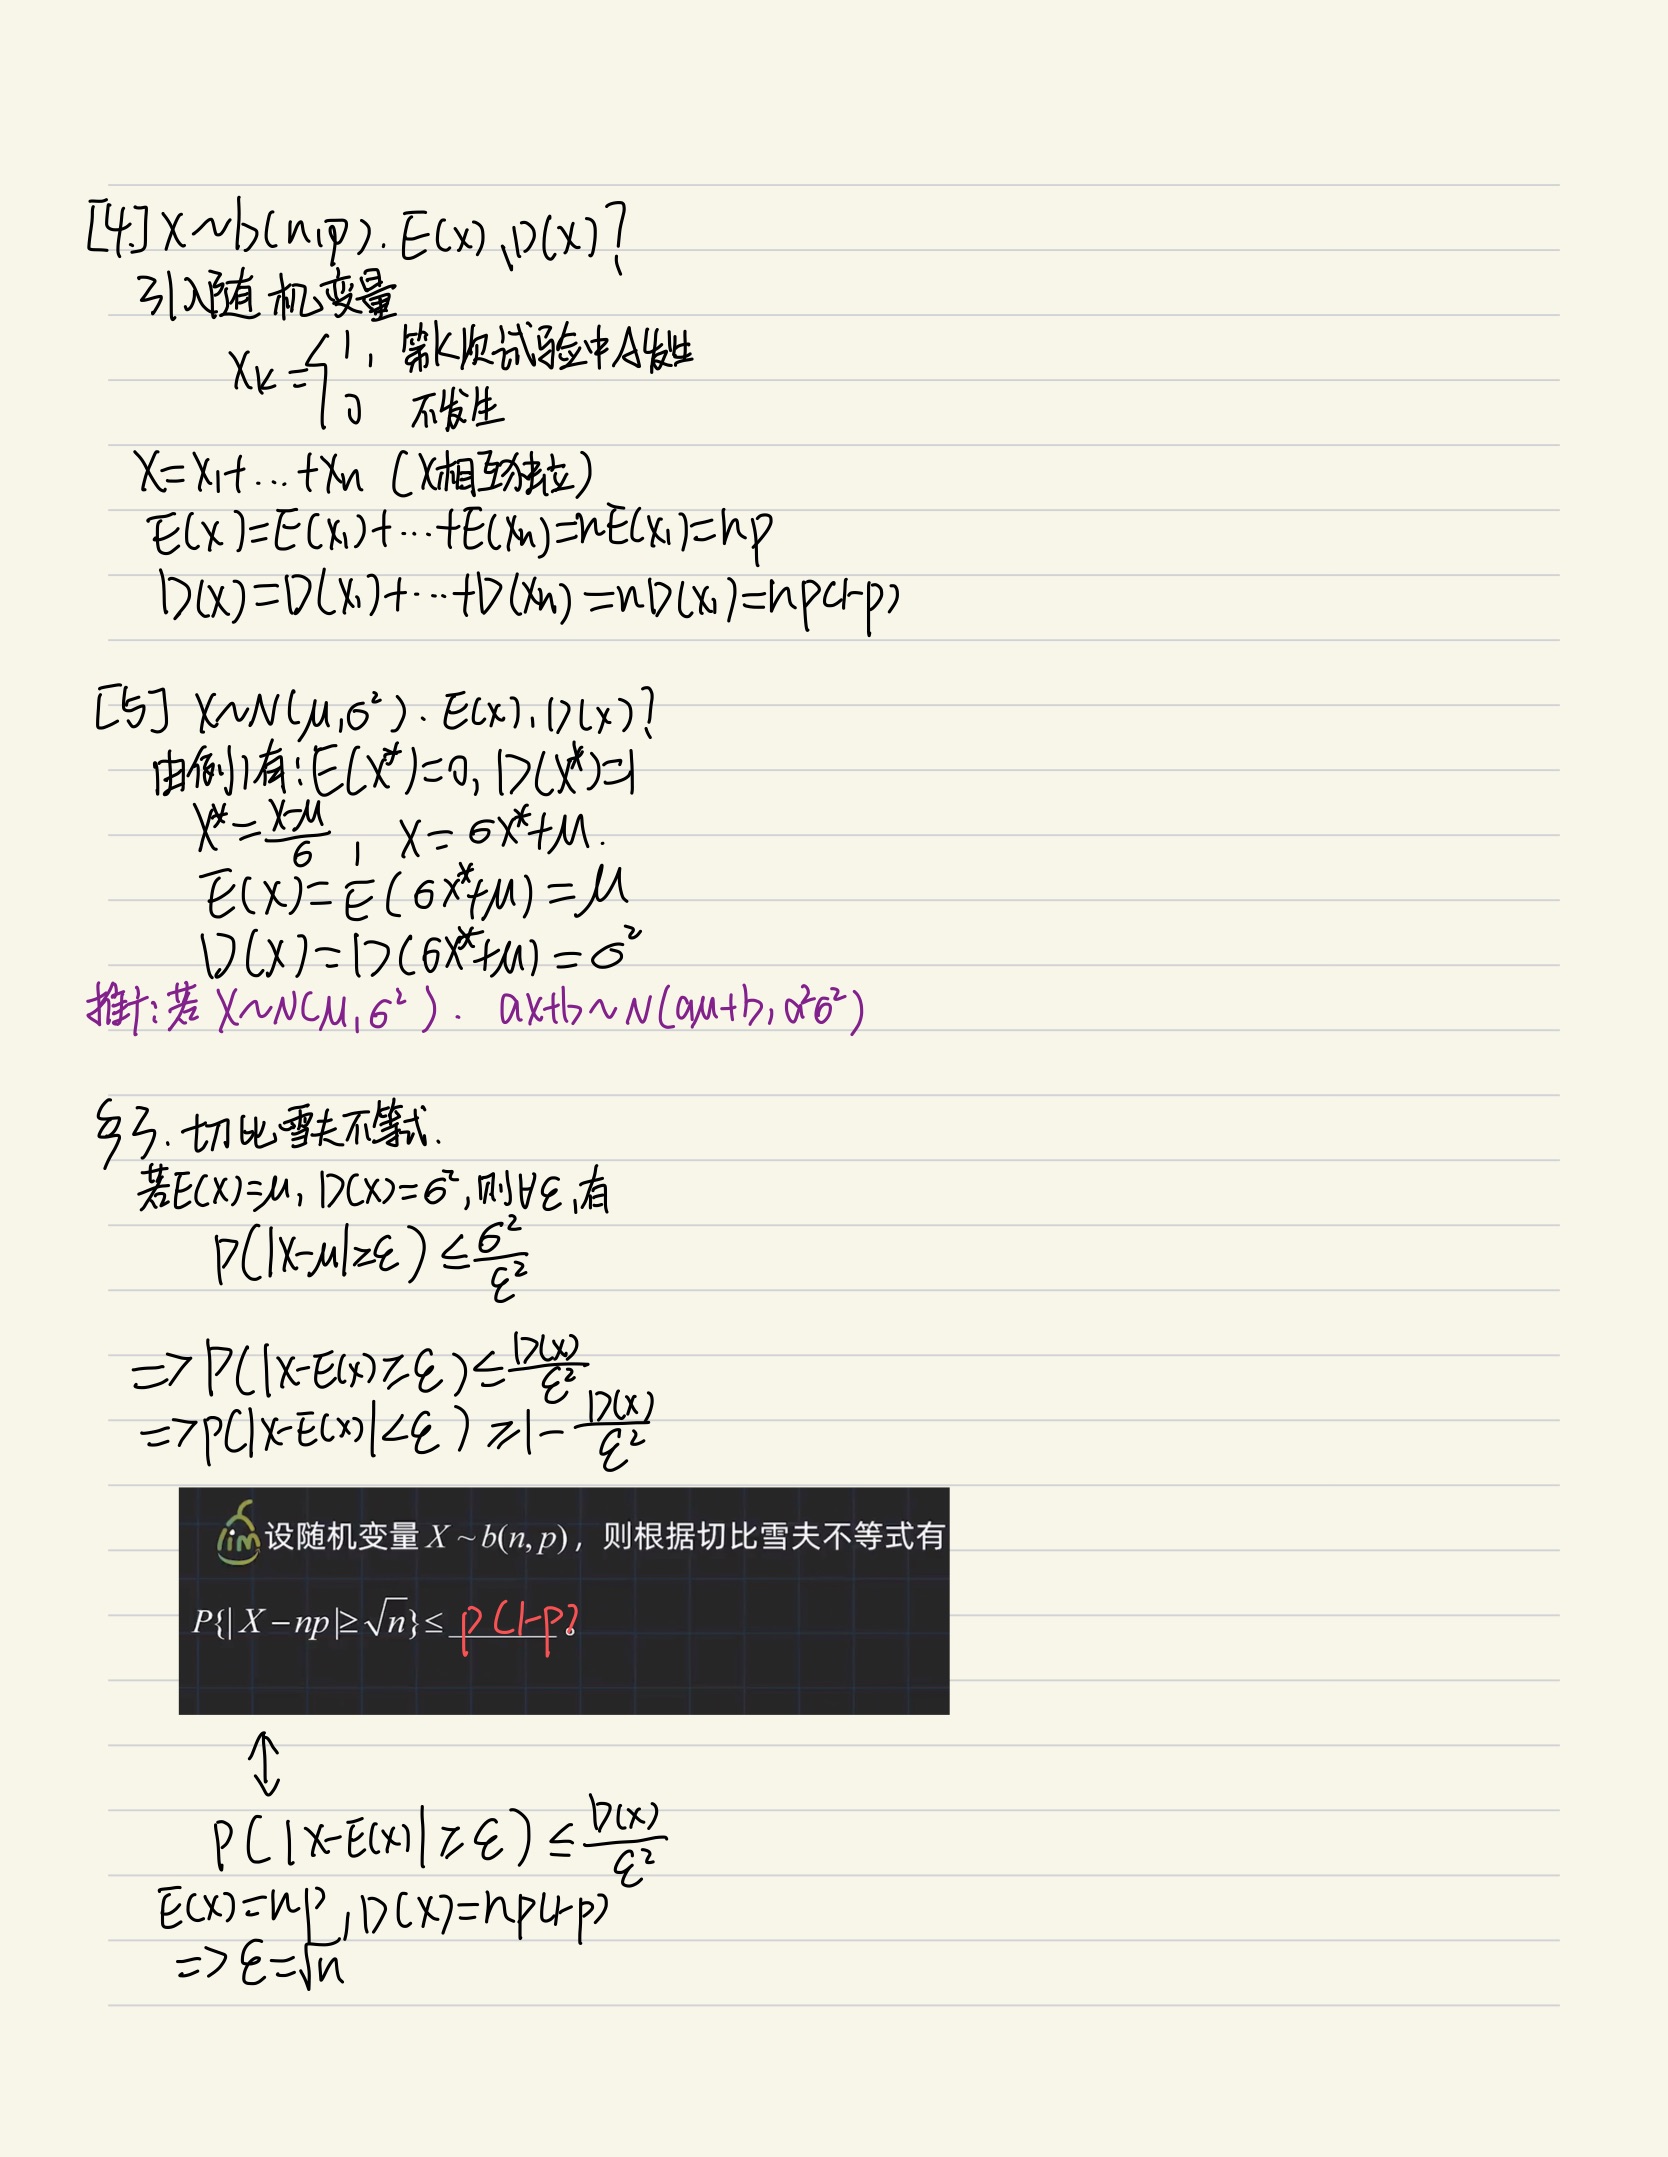 [4] X~b(n,p). E(X)、D(X)?
引入随机变量
X_k = { 1, 第k次试验中A发生
0 不发生
X=X₁+…+Xn (X相互独立)
E(X)=E(X₁)+…+E(Xn)=nE(X₁)=np
D(X)=D(X₁)+…+D(Xn)=nD(X₁)=np(1-p)
[5] X~N(μ,σ²). E(X),D(X)?
由例1有:E(X*)=0, D(X*)=1
X*=(X-μ)/σ, X=σX*+μ.
E(X)=E(σX*+μ)=μ
D(X)=D(σX*+μ)=σ²
推广:若X~N(μ,σ²). aX+b~N(aμ+b,a²σ²)
§3.切比雪夫不等式.
若E(X)=μ, D(X)=σ²,则∀ε,有
P(|X-μ|≥ε)≤σ²/ε²
=>P(|X-E(X)≥ε)≤D(X)/ε²
=>P(|X-E(X)|<ε)≥1-D(X)/ε²
im 设随机变量 X ~ b(n, p),则根据切比雪夫不等式有
P{| X − np |≥ √n} ≤ p(1-p)。
↕
P(|X-E(X)|≥ε)≤D(X)/ε²
E(X)=np,D(X)=np(1-p)
=>ε=√n